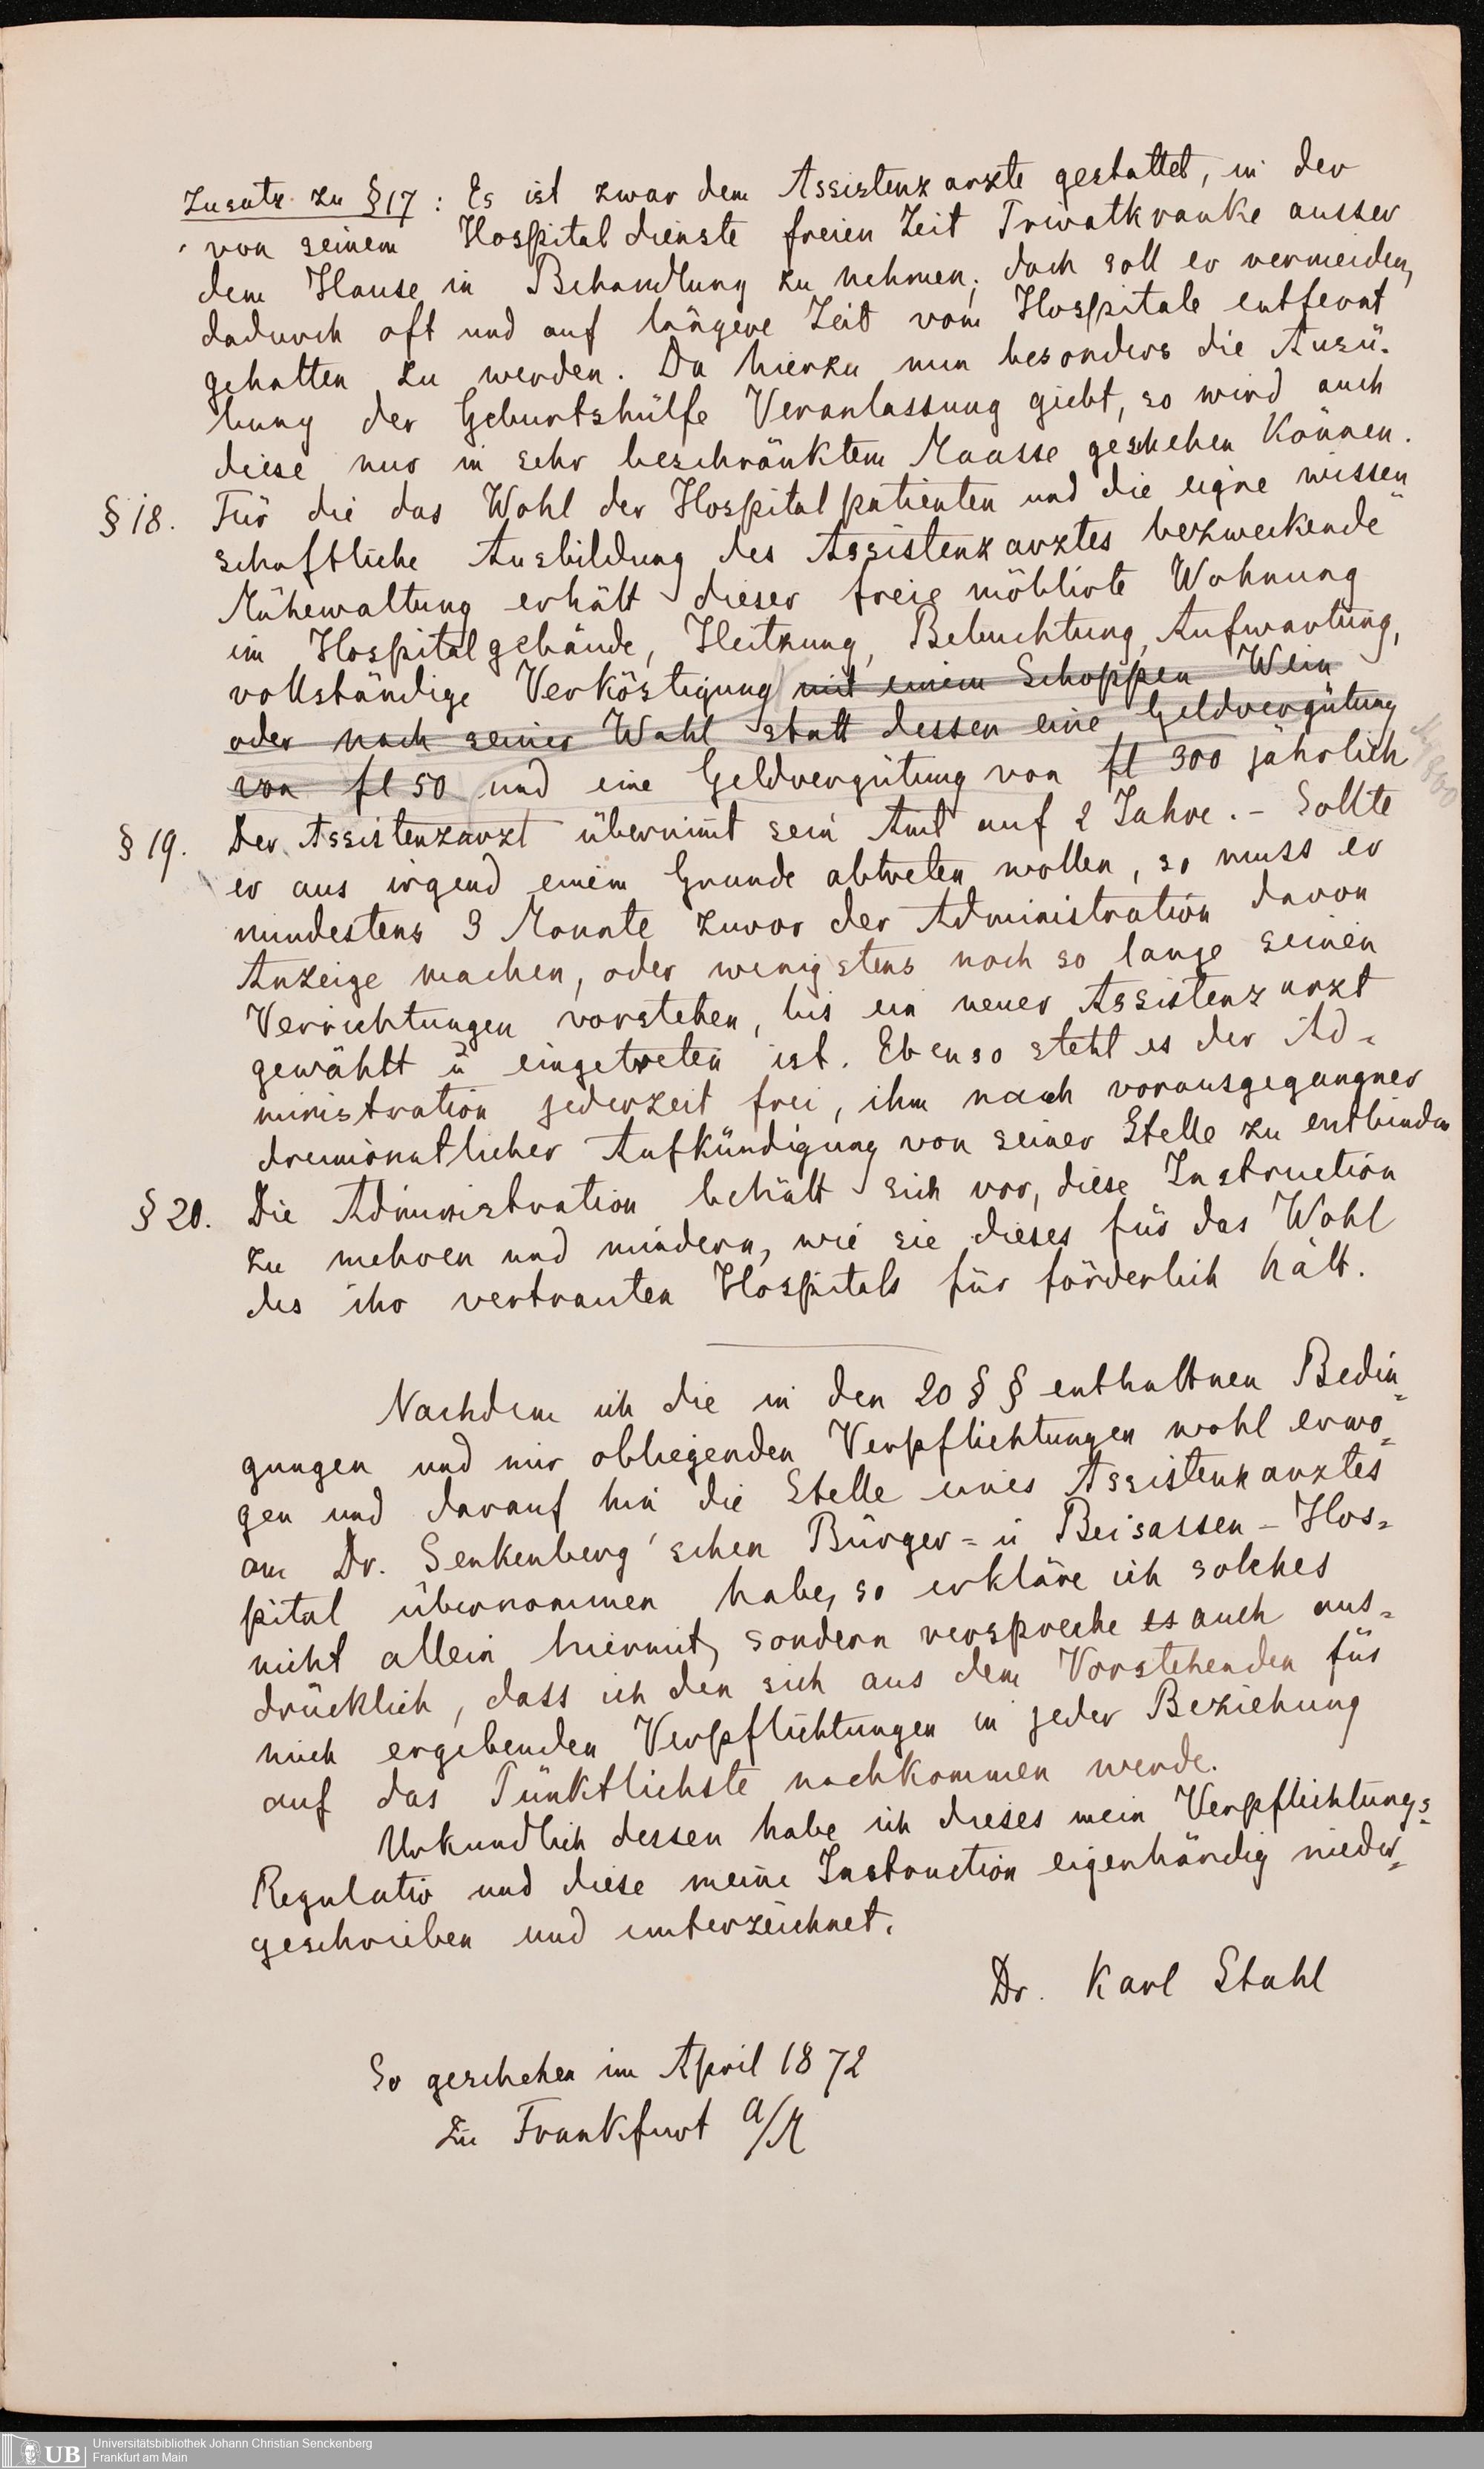 Zusatz zu § 17 : Es ist zwar dem Assistenzarzte gestattet, in der
von seinem Hospitaldienste freien Zeit Privatkranke ausser
dem Hause in Behandlung zu nehmen; doch soll er vermeiden,
dadurch oft und auf längere Zeit vom Hospitale entfernt
gehalten zu werden. Da hierzu nun besonders die Ausü-
bung der Geburtshülfe Veranlassung giebt, so wird auch
diese nur in sehr beschränktem Maasse geschehen können.
§ 18. Für die das Wohl der Hospitalpatienten und die eigne wissen
schaftliche Ausbildung des Assistenzarztes bezweckende
Mühewaltung erhält dieser freie möblirte Wohnung
im Hospitalgebäude, Heitzung, Beleuchtung, Aufwartung,
vollständige Verköstigung mit einem Schoppen Wein
oder nach seiner Wahl statt dessen eine Geldvergütung
von fl 50 und eine Geldvergütung von fl 300 jährlich
§ 19. Der Assistenzarzt übernimt sein Amt auf 2 Jahre. - Sollte
er aus irgend einem Grunde abtreten wollen, so muss er
mindestens 3 Monate zuvor der Administration davon
Anzeige machen, oder wenigstens noch so lange seinen
Verrichtungen vorstehen, bis ein neuer Assistenzarzt
gewählt u eingetreten ist. Ebenso steht es der Ad-
ministration jederzeit frei, ihm nach vorausgegangner
dreimonatlicher Aufkündigung von seiner Stelle zu entbinden
§ 20. Die Administration behält sich vor, diese Instruction
zu mehren und mindern, wie sie dieses für das Wohl
des ihr vertrauten Hospitals für förderlich hält.
Nachdem ich die in den 20 § § enthaltnen Bedin-
gungen und mir obliegenden Verpflichtungen wohl erwo-
gen und darauf hin die Stelle eines Assistenzarztes
am Dr. Senkenberg'schen Bürger- u Beisassen-Hos-
pital übernommen habe, so erkläre ich solches
nicht allein hiermit, sondern verspreche es auch aus-
drücklich, dass ich den sich aus dem Vorstehenden für
mich ergebenden Verpflichtungen in jeder Beziehung
auf das Pünktlichste nachkommen werde.
Urkundlich dessen habe ich dieses mein Verpflichtungs-
Regulativ und diese meine Instruction eigenhändig nieder-
geschrieben und unterzeichnet.
Dr. Karl Stahl
So geschehen im April 1872
zu Frankfurt a/M
UB
Universitätsbibliothek Johann Christian Senckenberg
Frankfurt am Main